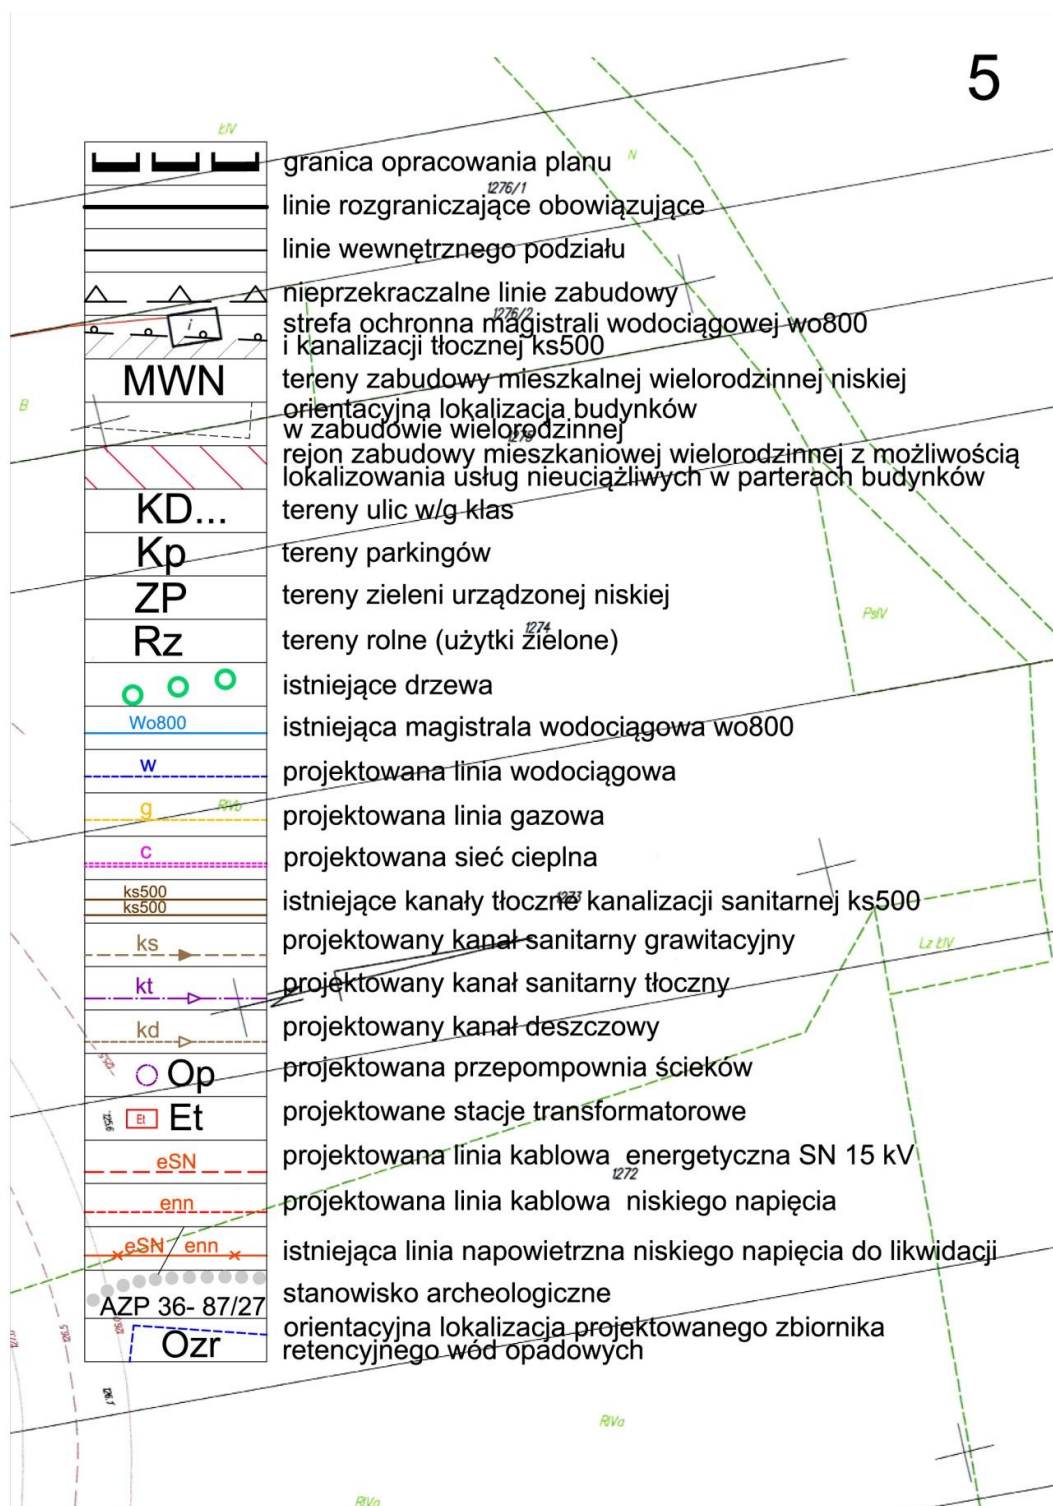 5
ŁIV
granica opracowania planu
N
1276/1
linie rozgraniczające obowiązujące
linie wewnętrznego podziału
nieprzekraczalne linie zabudowy
1276/2
i
strefa ochronna magistrali wodociągowej wo800
i kanalizacji tłocznej ks500
MWN tereny zabudowy mieszkalnej wielorodzinnej niskiej
B
orientacyjna lokalizacja budynków
w zabudowie wielorodzinnej
1275
rejon zabudowy mieszkaniowej wielorodzinnej z możliwością
lokalizowania usług nieuciążliwych w parterach budynków
KD... tereny ulic w/g klas
Kp tereny parkingów
ZP tereny zieleni urządzonej niskiej
PsIV
1274
Rz tereny rolne (użytki zielone)
istniejące drzewa
Wo800 istniejąca magistrala wodociągowa wo800
w projektowana linia wodociągowa
g RIVb projektowana linia gazowa
c projektowana sieć cieplna
ks500
ks500
istniejące kanały tłoczne kanalizacji sanitarnej ks500
1273
ks projektowany kanał sanitarny grawitacyjny
Lz ŁIV
kt projektowany kanał sanitarny tłoczny
kd projektowany kanał deszczowy
125.5
Op projektowana przepompownia ścieków
125.6
Et Et projektowane stacje transformatorowe
eSN projektowana linia kablowa energetyczna SN 15 kV
1272
enn projektowana linia kablowa niskiego napięcia
eSN enn istniejąca linia napowietrzna niskiego napięcia do likwidacji
AZP 36- 87/27 stanowisko archeologiczne
127.0
126.5
126.0
Ozr orientacyjna lokalizacja projektowanego zbiornika
retencyjnego wód opadowych
126.1
RIVa
RIVa